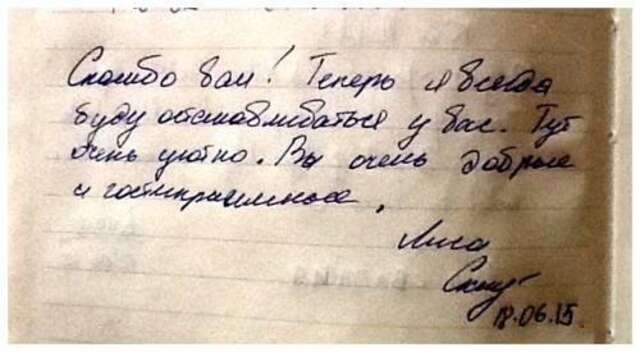 Спасибо вам! Теперь я всегда
буду останавливаться у вас. Тут
очень уютно. Вы очень добрые
и гостеприимные.
Лиса
18.06.15.